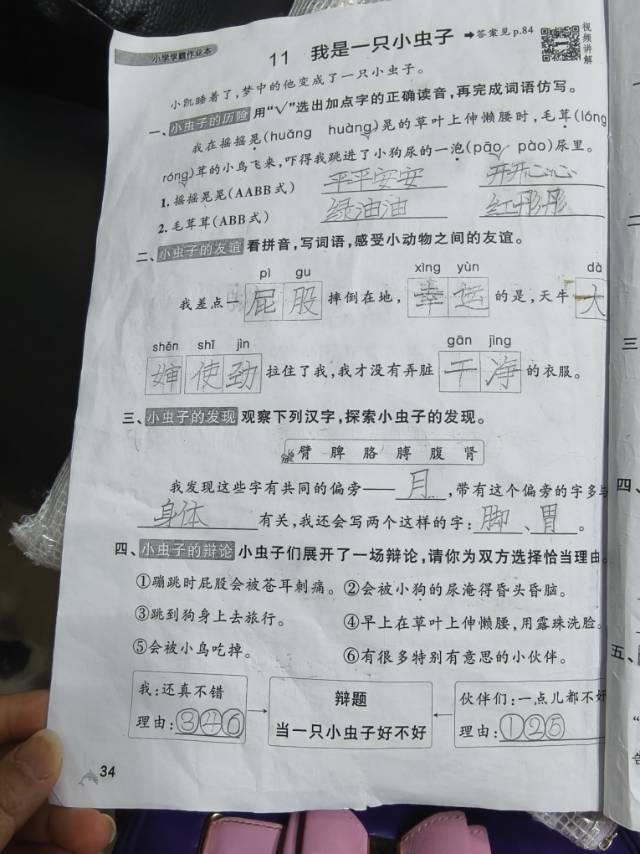 小学学霸作业本
11 我是一只小虫子 →答案见p.84
视频讲解
小凯睡着了,梦中的他变成了一只小虫子。
一、小虫子的历险 用“√”选出加点字的正确读音,再完成词语仿写。
我在摇摇晃(huǎng huàng)晃的草叶上伸懒腰时,毛茸(lóng
róng)茸的小鸟飞来,吓得我跳进了小狗尿的一泡(pāo pào)尿里。
1.摇摇晃晃(AABB式) 平平安安 开开心心
2.毛茸茸(ABB式) 绿油油 红彤彤
二、小虫子的友谊 看拼音,写词语,感受小动物之间的友谊。
pì gu xìng yùn dà
我差点一 屁股 摔倒在地, 幸运 的是,天牛 大
shěn shǐ jìn gān jìng
婶 使劲 拉住了我,我才没有弄脏 干 的衣服。
三、小虫子的发现 观察下列汉字,探索小虫子的发现。
臂 脾 胳 膊 腹 肾
我发现这些字有共同的偏旁——月,带有这个偏旁的字多
身体有关,我还会写两个这样的字:脚、胃。
四、小虫子的辩论 小虫子们展开了一场辩论,请你为双方选择恰当理由。
①蹦跳时屁股会被苍耳刺痛。②会被小狗的尿淹得昏头昏脑。
③跳到狗身上去旅行。 ④早上在草叶上伸懒腰,用露珠洗脸。
⑤会被小鸟吃掉。 ⑥有很多特别有意思的小伙伴。
我:还真不错 辩题 伙伴们:一点儿都不好
理由:③④⑥ 当一只小虫子好不好 理由:①②⑤
34
三
四、
五、